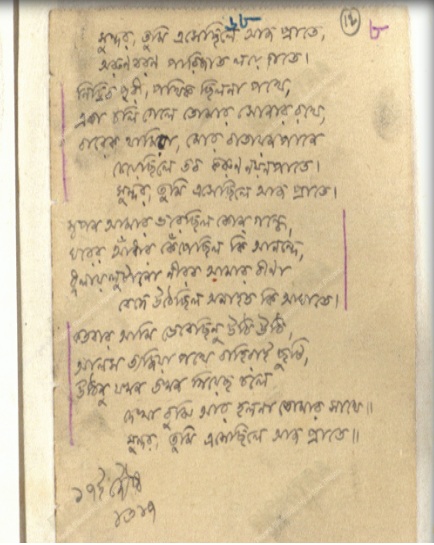 সুন্দর, তুমি এসেছিলে আজ প্রাতে,
অরুণবরণ পারিজাত লয়ে হাতে।
নিদ্রিত পুরী, পথিক ছিলনা পথে,
একা চলি গেলে তোমার সোনার রথে,
বারেক থামিয়া, মোর বাতায়নপানে
চেয়েছিলে তব করুণ নয়নপাতে।
সুন্দর, তুমি এসেছিলে আজ প্রাতে।
স্বপন আমার ভরেছিল কোন গন্ধে,
ঘরের আঁধার কেঁপেছিল কি আনন্দে,
ধুলায় লুটানো নীরব আমার বীণা
বেজে উঠেছিল অনাহত কি আঘাতে।
কতবার আমি ভেবেছিনু উঠি উঠি,
আলস ত্যজিয়া পথে বাহিরাই ছুটি,
উঠিনু যখন তখন গিয়েছ চলে
দেখা বুঝি আর হলনা তোমার সাথে॥
সুন্দর, তুমি এসেছিলে আজ প্রাতে॥
১৭ই জ্যৈষ্ঠ
১৩১৭